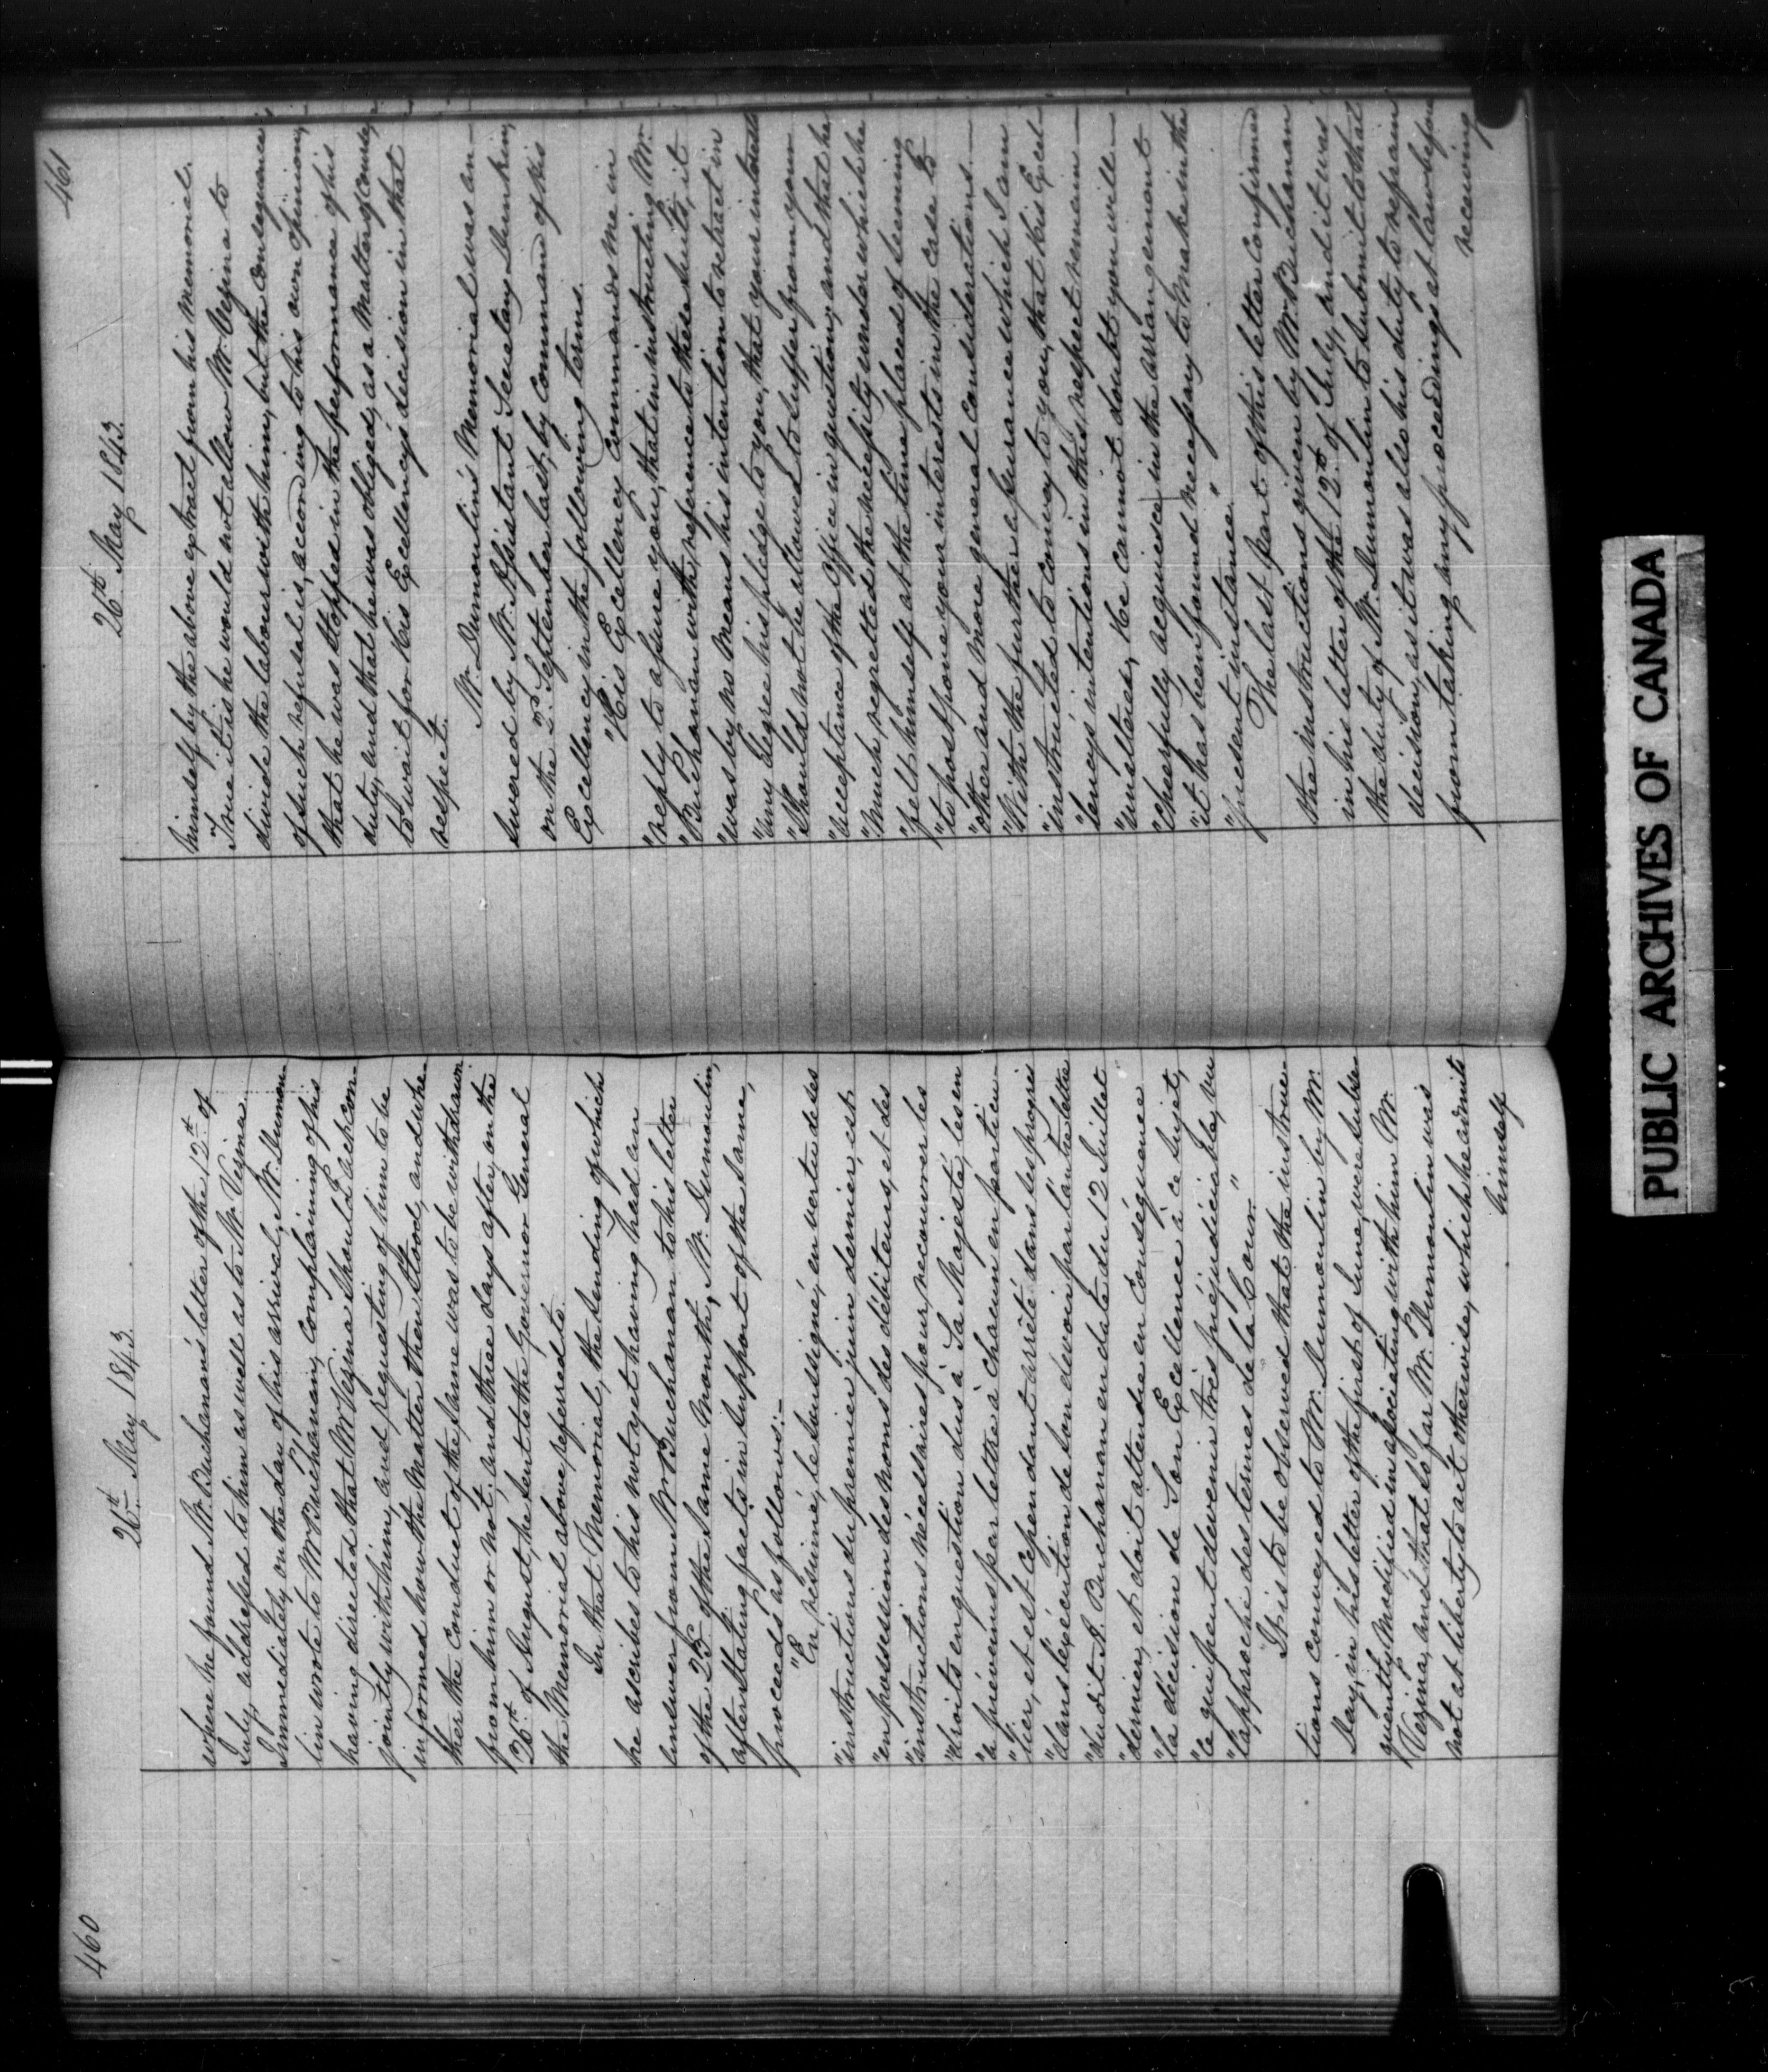 460
26th May 1843.
where he found Mr. Buchanan's letter of the 12th of
July, addressed to him as well as to Mr. Vezina.
Immediately on the day of his arrival, Mr. Dumou-
lin wrote to Mr Buchanan, complaining of his
having directed that Mr Vezina should act con-
jointly with him, and requesting of him to be
informed how the matter then stood, and whe-
ther the conduct of the same was to be withdrawn
from him or not; and three days after, on the
26th of August, he sent to the Governor General
the Memorial above referred to.
In that Memorial, the sending of which
he ascribes to his not yet having had an
answer from Mr Buchanan to his letter
of the 23d of the same month, Mr. Dumoulin,
after stating facts in support of the same,
proceeds as follows:—
"En résumé, le soussigné, en vertu de ses
"instructions du premier juin dernier, est
"en possession des noms des débiteurs, et des
"instructions nécessaires pour recouvrer les
"droits en question dus à Sa Majesté, les en
"a prévenus par lettre à chacun en particu-
"lier, et est cependant arrêté dans les progrès
"dans l'exécution de son devoir par l'autre lettre
"du dit A. Buchanan en date du 12 Juillet
"dernier, et doit attendre en conséquence
"la décision de Son Excellence à ce sujet,
"ce qui peut devenir très préjudiciable, vu
"l'approche des termes de la Cour."
It is to be observed that the instruc-
tions conveyed to Mr. Dumoulin by Mr.
Day, in his letter of the first of June, were subse
quently modified in associating with him Mr.
Vezina, and that so far Mr. Dumoulin was
not at liberty to act otherwise, which he admits
himself
461
26th May 1843.
himself by the above extract from his memorial.
True it is he would not allow Mr. Vezina to
divide the labour with him, but the consequence
of such refusal is, according to his own opinion,
that he was stopped in the performance of his
duty, and that he was obliged, as a matter of course,
to wait for His Excellency's decision in that
respect.
Mr. Dumoulin's Memorial was an-
swered by Mr. Assistant Secretary Dunkin,
on the 2d September last, by Command of His
Excellency in the following terms.
"His Excellency commands me in
"reply to assure you, that in instructing Mr.
"Buchanan with reference to these suits, it
"was by no means his intention to retract in
"any degree his pledge to you, that your interests
"should not be allowed to suffer from your
"acceptance of the office in question, and that he
"much regretted the necessity under which he
"felt himself at the time placed of seeming
"to postpone your interests in the case to
"other and more general considerations.—
"With the further assurance which I am
"instructed to convey to you, that His Excel-
"lency's intentions in this respect remain
"unaltered, He cannot doubt you will
"cheerfully acquiesce in the arrangement
"it has been found necessary to make in the
"present instance."
The last part of this letter confirmed
the instructions given by Mr. Buchanan
in his letter of the 12th of July, and it was
the duty of Mr. Dumoulin to submit to that
decision, as it was also his duty to refrain
from taking any proceedings at law before
receiving
PUBLIC ARCHIVES OF CANADA